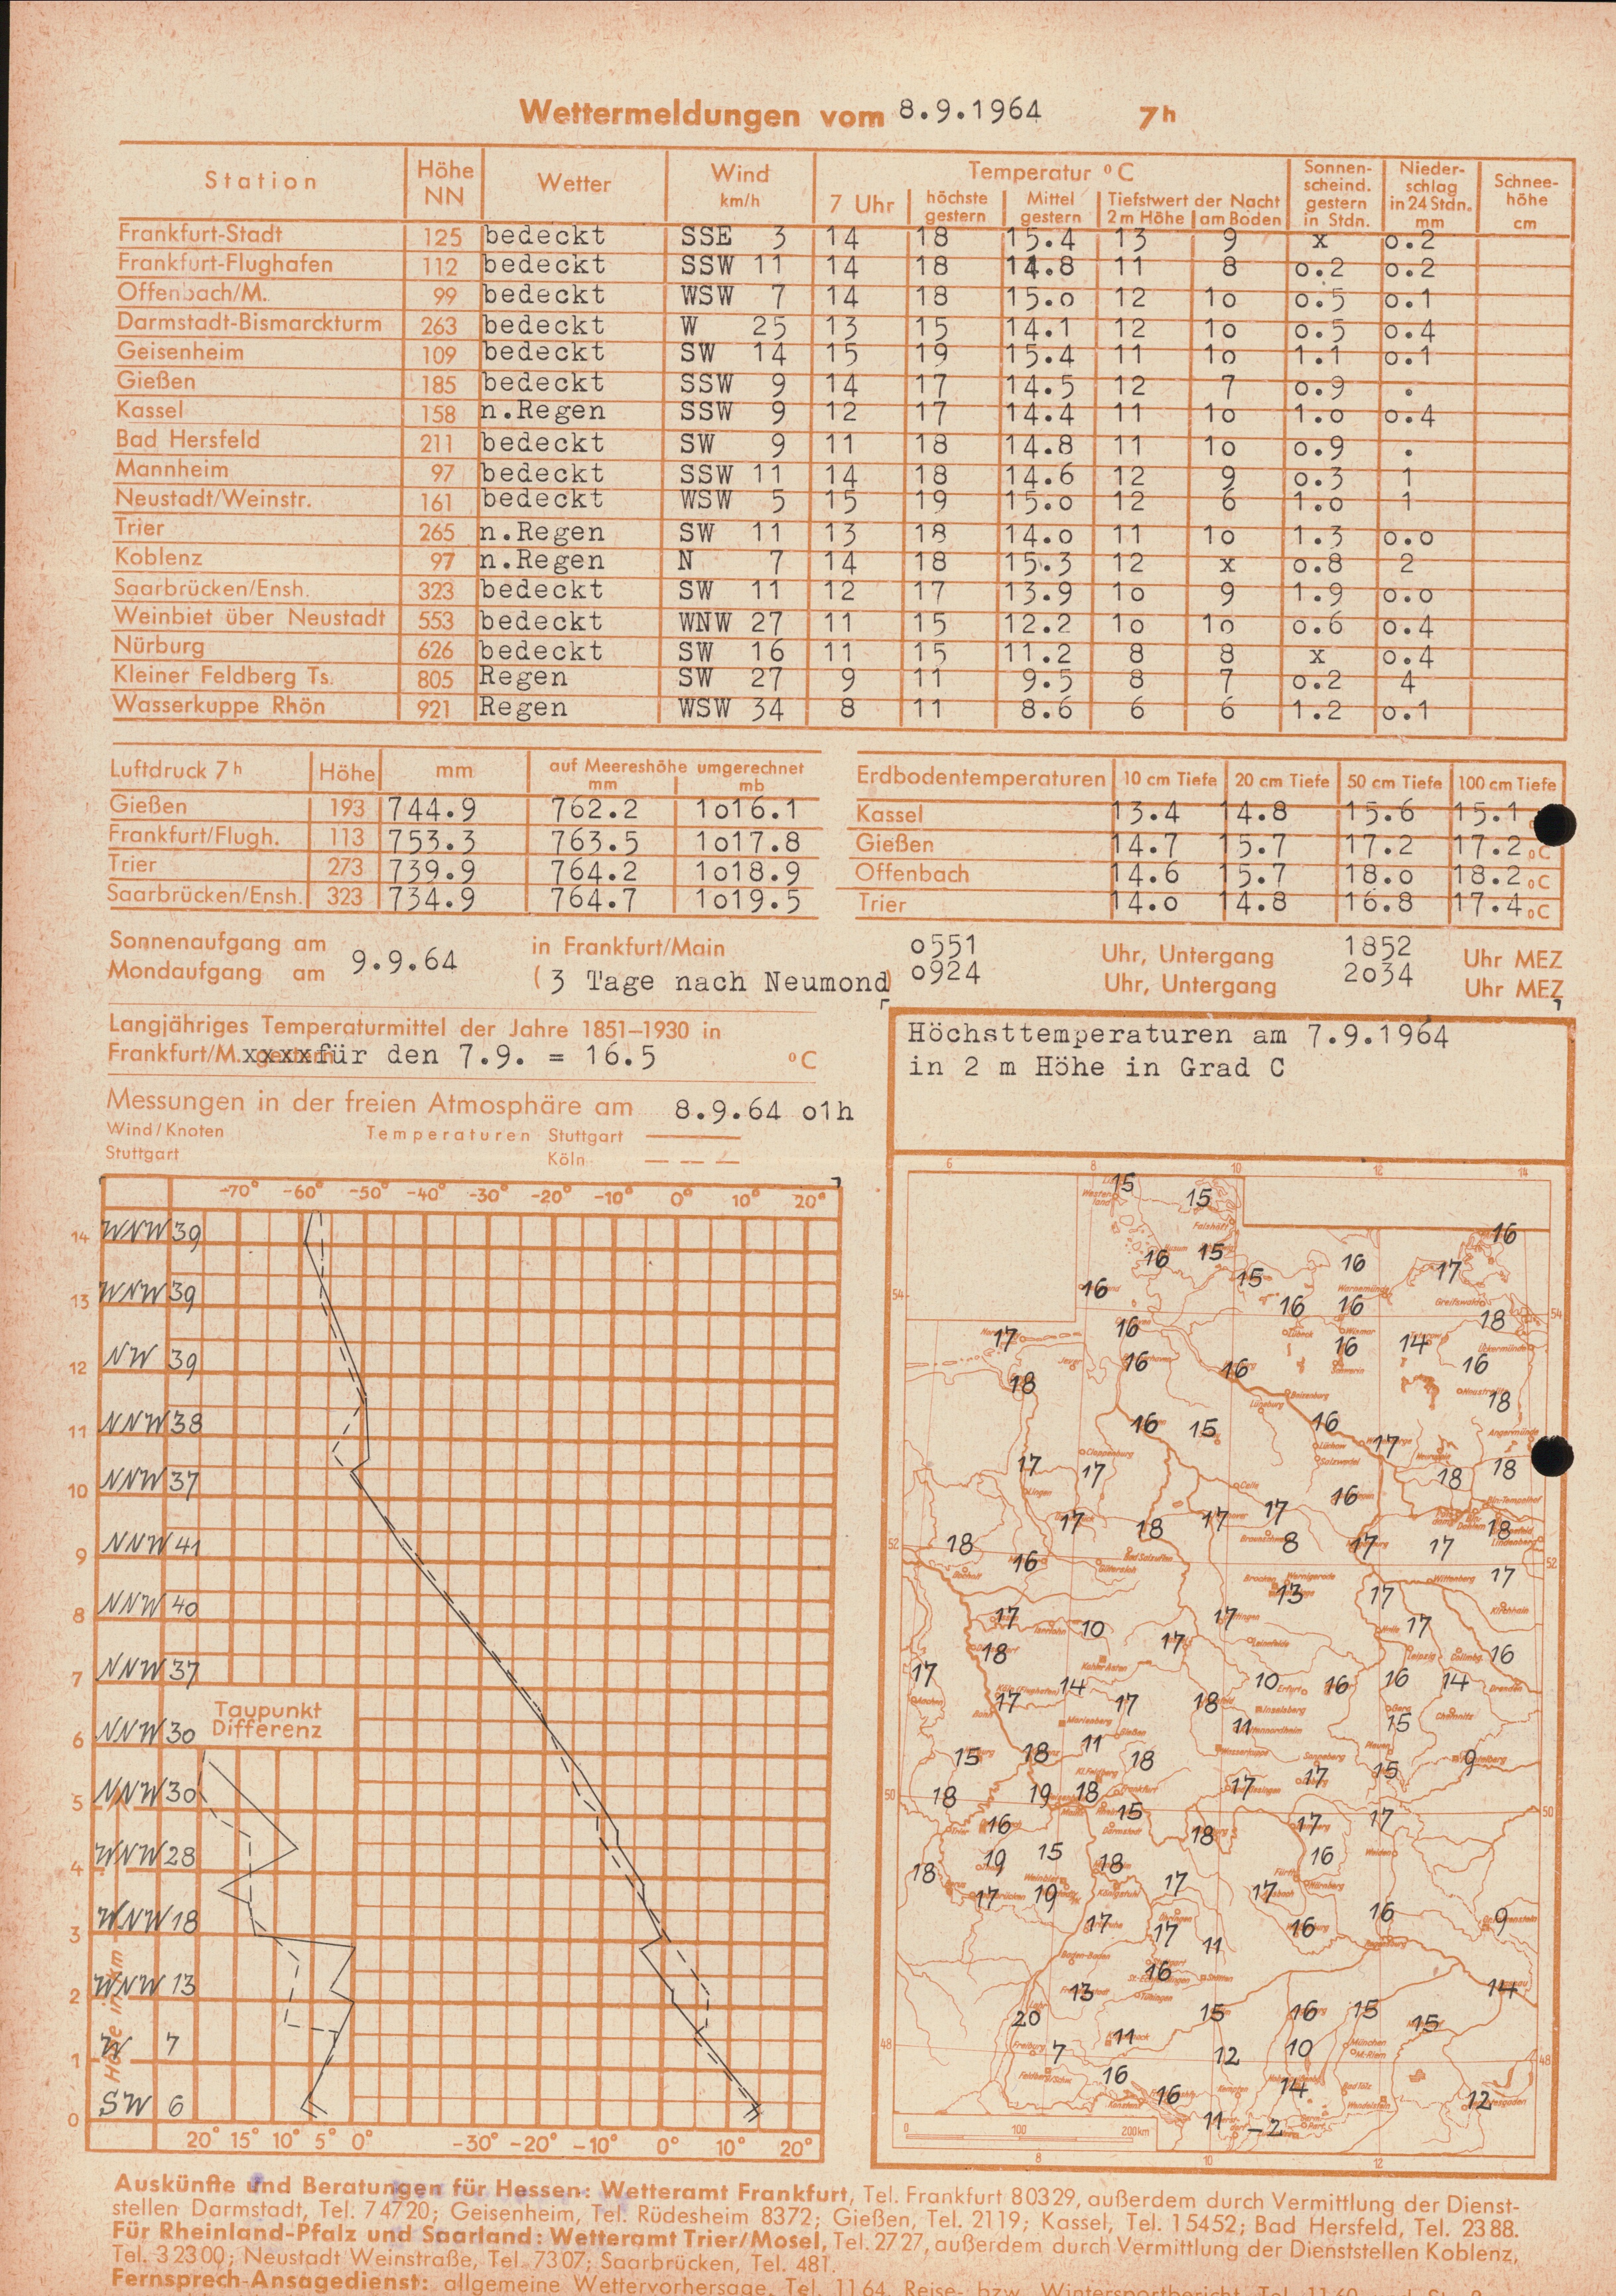 Wettermeldungen vom 8.9.1964 7h
Station Höhe NN Wetter Wind km/h Temperatur °C Sonnenscheind. gestern in Stdn. Niederschlag in 24 Stdn. mm Schneehöhe cm
7 Uhr höchste gestern Mittel gestern Tiefstwert der Nacht 2 m Höhe am Boden
Frankfurt-Stadt 125 bedeckt SSE 3 14 18 15.4 13 9 x 0.2
Frankfurt-Flughafen 112 bedeckt SSW 11 14 18 14.8 11 8 0.2 0.2
Offenbach/M. 99 bedeckt WSW 7 14 18 15.0 12 10 0.5 0.1
Darmstadt-Bismarckturm 263 bedeckt W 25 13 15 14.1 12 10 0.5 0.4
Geisenheim 109 bedeckt SW 14 15 19 15.4 11 10 1.1 0.1
Gießen 185 bedeckt SSW 9 14 17 14.5 12 7 0.9 .
Kassel 158 n.Regen SSW 9 12 17 14.4 11 10 1.0 0.4
Bad Hersfeld 211 bedeckt SW 9 11 18 14.8 11 10 0.9 .
Mannheim 97 bedeckt SSW 11 14 18 14.6 12 9 0.3 1
Neustadt/Weinstr. 161 bedeckt WSW 5 15 19 15.0 12 6 1.0 1
Trier 265 n.Regen SW 11 13 18 14.0 11 10 1.3 0.0
Koblenz 97 n.Regen N 7 14 18 15.3 12 x 0.8 2
Saarbrücken/Ensh. 323 bedeckt SW 11 12 17 13.9 10 9 1.9 0.0
Weinbiet über Neustadt 553 bedeckt WNW 27 11 15 12.2 10 10 0.6 0.4
Nürburg 626 bedeckt SW 16 11 15 11.2 8 8 x 0.4
Kleiner Feldberg Ts. 805 Regen SW 27 9 11 9.5 8 7 0.2 4
Wasserkuppe Rhön 921 Regen WSW 34 8 11 8.6 6 6 1.2 0.1
Luftdruck 7h Höhe mm auf Meereshöhe umgerechnet mm mb
Gießen 193 744.9 762.2 1016.1
Frankfurt/Flugh. 113 753.3 763.5 1017.8
Trier 273 739.9 764.2 1018.9
Saarbrücken/Ensh. 323 734.9 764.7 1019.5
Erdbodentemperaturen 10 cm Tiefe 20 cm Tiefe 50 cm Tiefe 100 cm Tiefe
Kassel 13.4 14.8 15.6 15.1
Gießen 14.7 15.7 17.2 17.2 °C
Offenbach 14.6 15.7 18.0 18.2 °C
Trier 14.0 14.8 16.8 17.4 °C
Sonnenaufgang am 9.9.64 in Frankfurt/Main 0551 Uhr, Untergang 1852 Uhr MEZ
Mondaufgang am (3 Tage nach Neumond) 0924 Uhr, Untergang 2034 Uhr MEZ
Langjähriges Temperaturmittel der Jahre 1851–1930 in
Frankfurt/M. xxxx für den 7.9. = 16.5 °C
Messungen in der freien Atmosphäre am 8.9.64 01h
Wind/Knoten Temperaturen Stuttgart
Stuttgart Köln
-70° -60° -50° -40° -30° -20° -10° 0° 10° 20°
14 WNW 39
13 WNW 39
12 NW 39
11 NNW 38
10 NNW 37
9 NNW 41
8 NNW 40
7 NNW 37
Taupunkt
Differenz
6 NNW 30
5 NNW 30
4 WNW 28
3 WNW 18
2 WNW 13
1 W 7
0 SW 6
Höhe in km
20° 15° 10° 5° 0° -30° -20° -10° 0° 10° 20°
Höchsttemperaturen am 7.9.1964
in 2 m Höhe in Grad C
6 8 10 12 14
15 15 16
16 15 16 17
16 15
16 16 18
17 16 16 14
16 16 16
18 18
16 15 16 17
17 17 18 18
16
17 18 17 17 18
18 16 8 17 17
13 17 17
17 10 17 17
18 17 16
17 14 10 16 16 14
17 17 18
11 15
15 18 11 18 9
18 19 18 17 17 15
16 15 18 17 17
19 15 18 16
18 17 19 17 17
17 17 16 16 9
11
16 13 14
20 15 16 15 15
7 11 12 10
16 16 14 12
11 -2
0 100 200 km
8 10 12
Auskünfte und Beratungen für Hessen: Wetteramt Frankfurt, Tel. Frankfurt 80329, außerdem durch Vermittlung der Dienst-
stellen Darmstadt, Tel. 74720; Geisenheim, Tel. Rüdesheim 8372; Gießen, Tel. 2119; Kassel, Tel. 15452; Bad Hersfeld, Tel. 2388.
Für Rheinland-Pfalz und Saarland: Wetteramt Trier/Mosel, Tel. 2727, außerdem durch Vermittlung der Dienststellen Koblenz,
Tel. 32300; Neustadt Weinstraße, Tel. 7307; Saarbrücken, Tel. 481.
Fernsprech-Ansagedienst: allgemeine Wettervorhersage, Tel. 1164, Reise- bzw. Wintersportbericht Tel. 1160